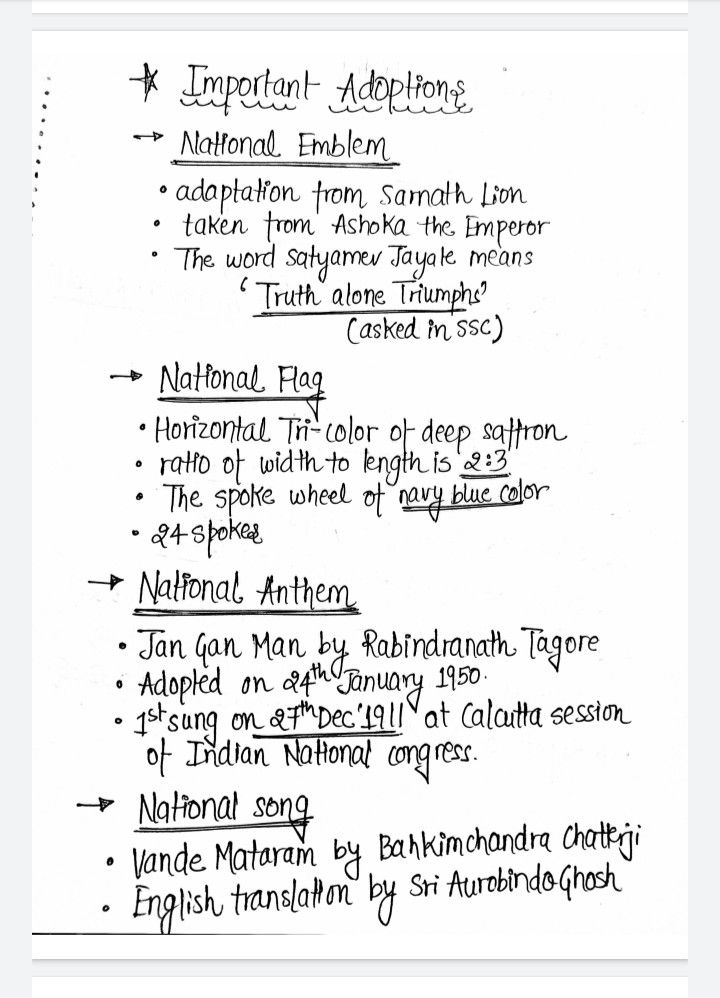 * Important Adoptions
→ National Emblem
• adaptation from Sarnath Lion
• taken from Ashoka the Emperor
• The word Satyamev Jayate means
'Truth alone Triumphs'
(asked in SSC)
→ National Flag
• Horizontal Tri-color of deep saffron
• ratio of width to length is 2:3
• The spoke wheel of navy blue color
• 24 spokes
→ National Anthem
• Jan Gan Man by Rabindranath Tagore
• Adopted on 24th January 1950.
• 1st sung on 27th Dec'1911 at Calcutta session
of Indian National congress.
→ National song
• Vande Mataram by Bankimchandra Chatterji
• English translation by Sri Aurobindo Ghosh